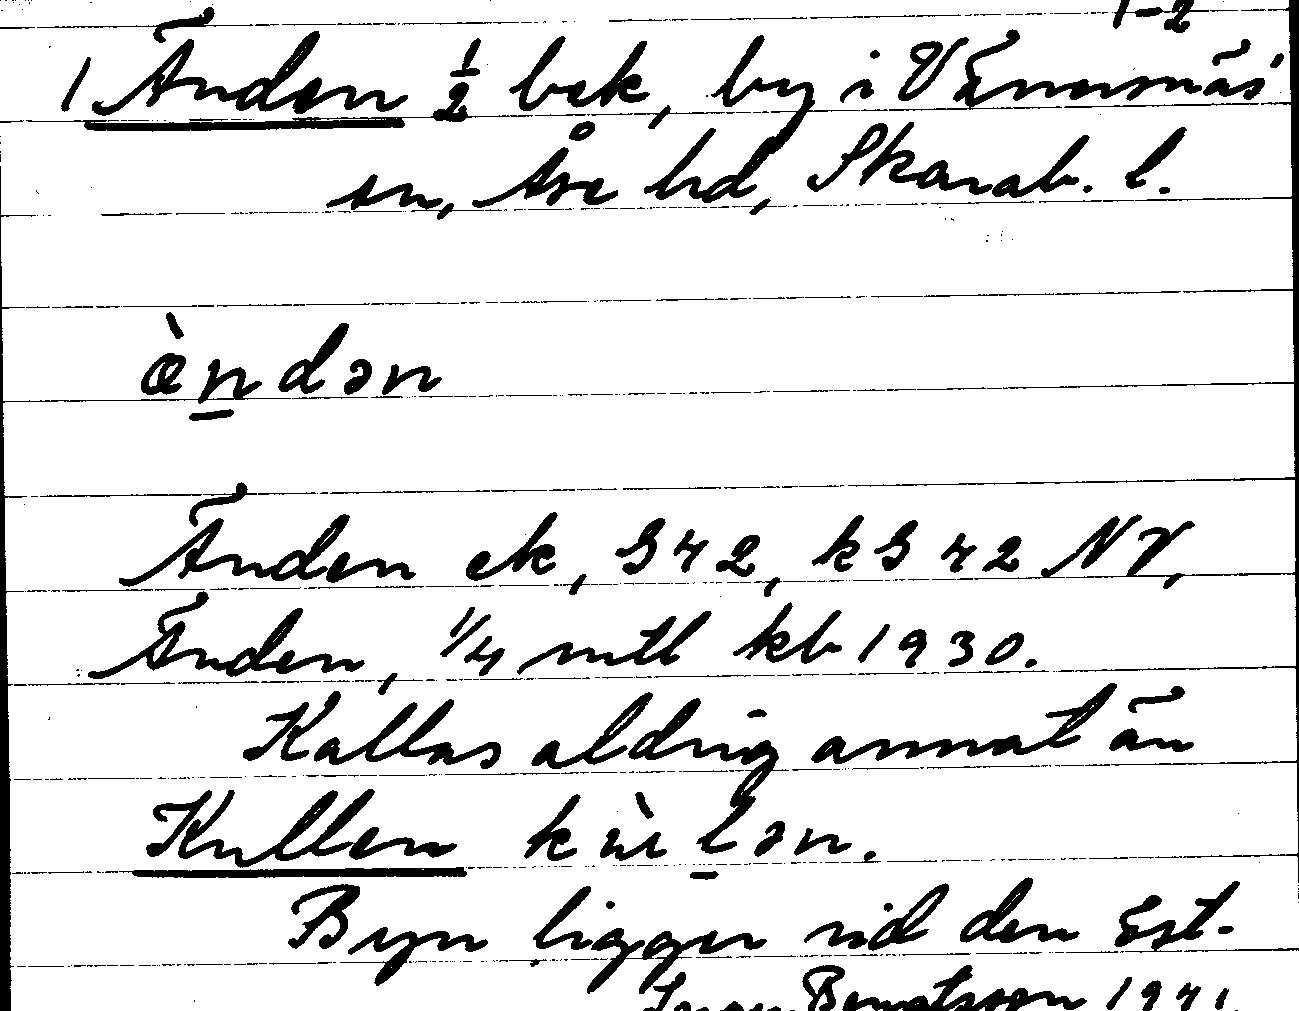 1-2
1 Änden 1/2 bek, by i Vänersnäs'
sn, Åse hd, Skarab. l.
æ̀n̲dən
Änden ek, G42, kG42 NV,
Änden, 1/4 mtl kb 1930.
Kallas aldrig annat än
Kullen kùl̲ən.
Byn ligger vid den öst-
Bengtsson 1941.